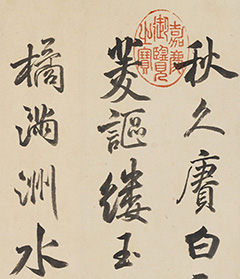 秋久賡白
菱謳縷玉
橘滿洲水
嘉慶
御覽
之寶